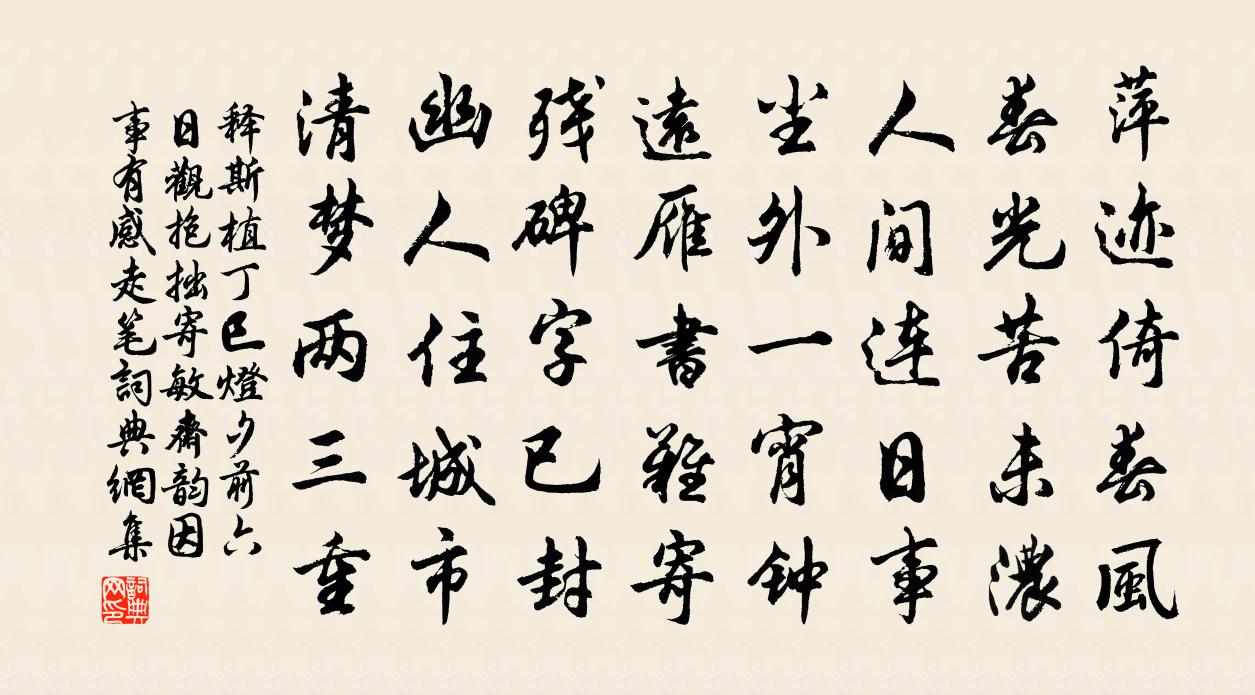 萍迹倚春風
春光苦未濃
人间连日事
尘外一宵钟
遠雁書難寄
残碑字已封
幽人住城市
清梦两三重
释斯植丁巳燈夕前六
日觀抱拙寄敏齋韵因
事有感走笔詞典網集
詞典网印